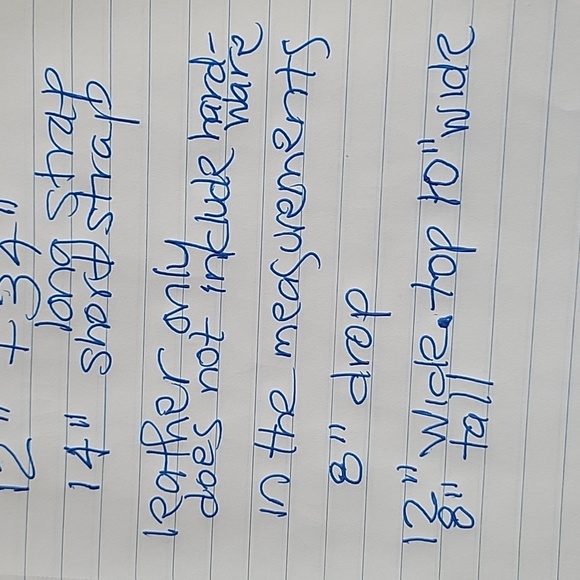 12" + 34"
long strap
14" short strap
leather only
does not include hard-
ware
in the measurements
8" drop
12" wide. top 10" wide
8" tall